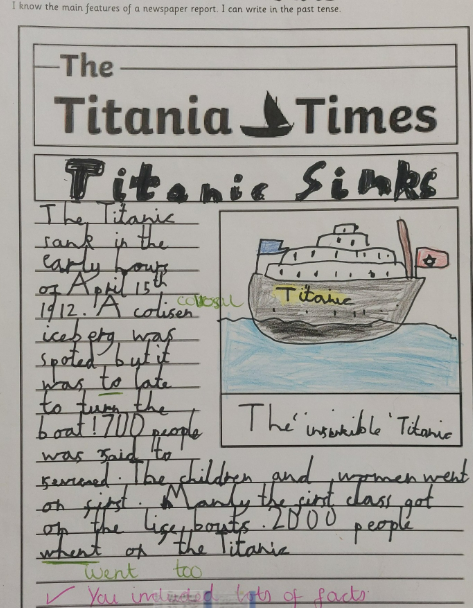 I know the main features of a newspaper report. I can write in the past tense.
The
Titania Times
Titanic Sinks
The Titanic
sank in the
early hours
of April 15th
1912. A colisen colosal
iceberg was
spoted but it
was to late
to turn the
boat! 700 people
was said to
The children and women went
on first. Manly the first class got
on the lige bouts. 2000 people
whent on the Titanic
went too
✓ You included lots of facts.
Titanic
The 'insinkible' Titanic